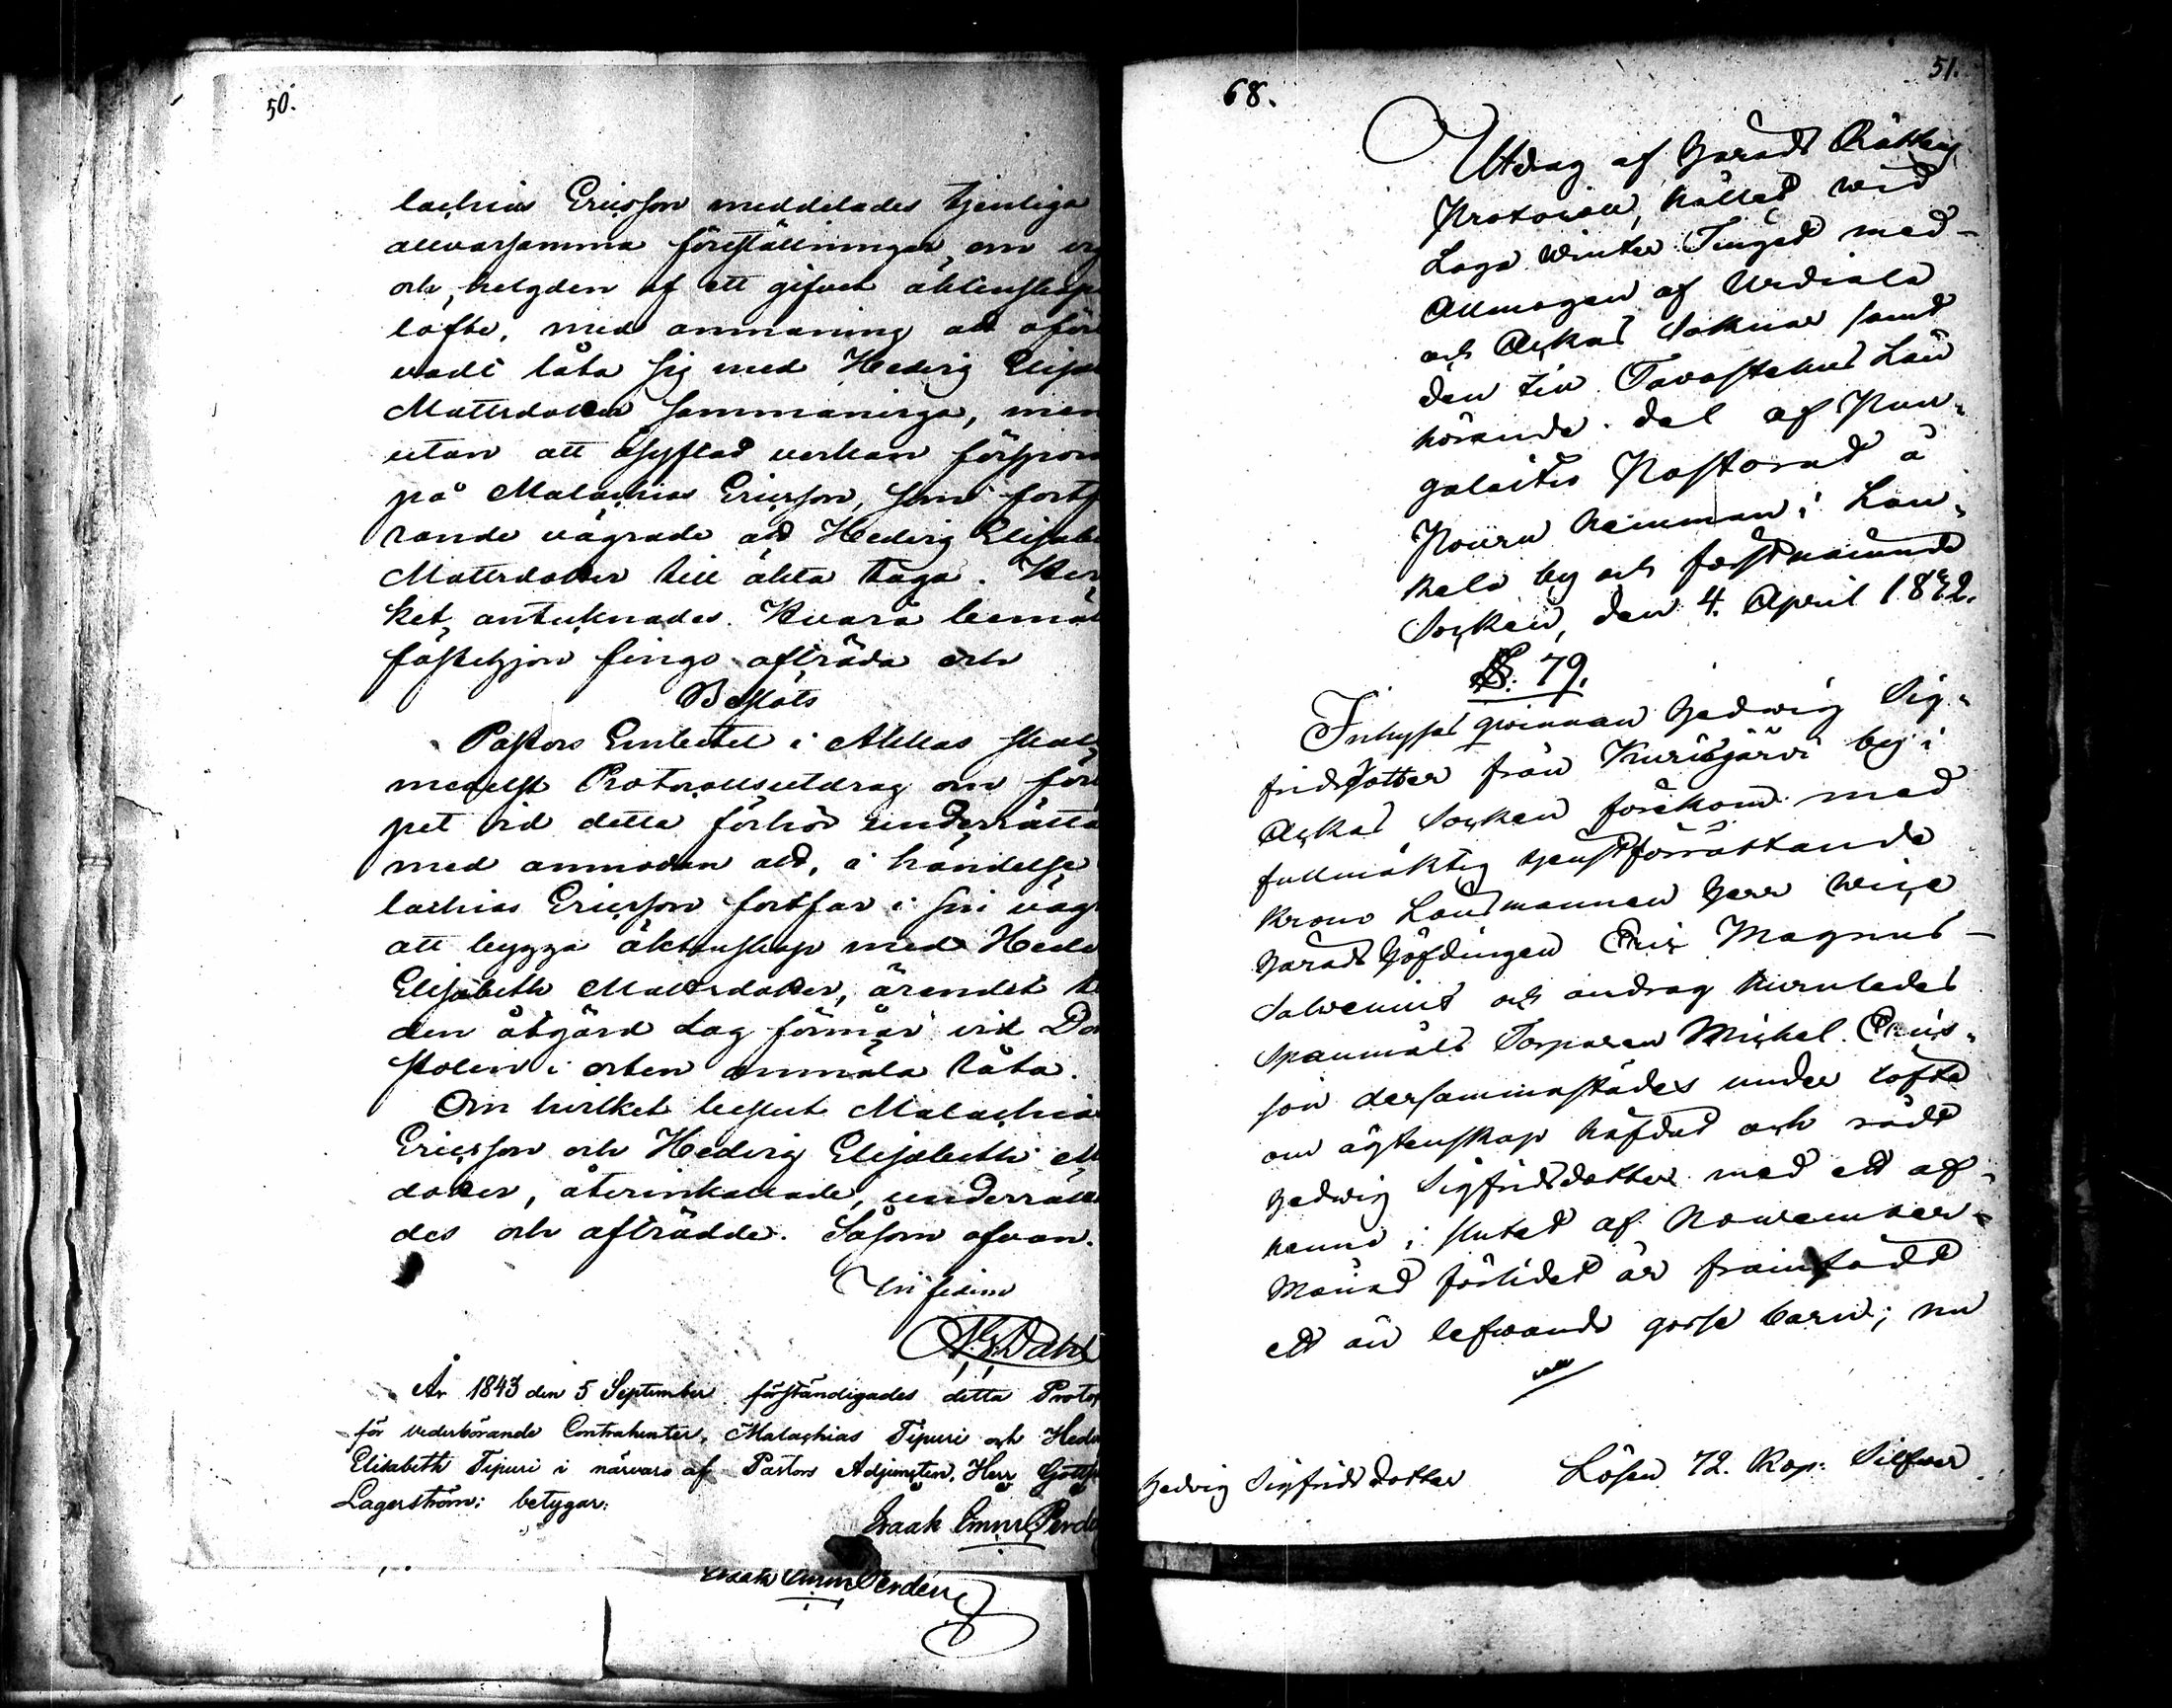 50.
lachias Ericsson meddelades tjenliga
allvarsamma föreställningar, om
och helgden af ett gifvet äktenskaps
löfte, med anmaning att oför
vadt låta sig med Hedvig Elisa
Mattsdotter sammanviga, men
utan att åsyftad verkan förspor
på Malachias Ericsson, som fortf
rande vägrade att Hedvig Elisabe
Mattsdotter till äkta taga. Hvil
ket antecknades. Hvarå bemäl
fästehjon fingo afträda och
Beslöts
Pastors Embetet i Akkas skall
medelst Protocollsutdrag om förlo
pet vid detta förhör underrätta
med anmodan att, i händelse
lachias Ericsson fortfar i sin väg
att bygga äktenskap med Hedv
Elisabeth Mattsdotter, ärendet til
den åtgärd Lag förmår vid Dom
stolen i orten anmäla låta.
Om hvilket beslut Malachias
Ericsson och Hedvig Elisabeth
dotter, återinkallade, underrätta
des och afträdde. Såsom ofvan.
In fidem
Dahl
År 1843 den 5 September förständigades detta Protoc
för vederbörande Contrahenter, Malachias Tipuri och Hedv
Elisabeth Tipuri i närvaro af Pastors Adjuncten, Herr Gottfr
Lagerström; betygar:
Isaak Emm Perdé
Isaak Emm Perdén
51.
68.
Utdrag af Härads Rättens
Protocoll, hållet wid
Laga Winter Tinget med
Allmogen af Urdiala
och Ackas Soknar samt
den till Tavastehus Län
hörande del af Pun-
galaitio Pastorat å
Pouru hemman i Hon-
kola by och förstnämnde
Socken, den 4. April 1842.
§. 79.
Inhyses qwinnan Hedwig Sig-
fridsdotter från Kurisjärvi by i
Ackas Socken förekom med
fullmäktig tjenstförrättande
Krono Länsmannen Herr Wice
Häradshöfdingen Eric Magnus
Salvenius och androg huruledes
Spanmåls Torparen Michel Erics-
son dersammastädes under löfte
om ägtenskap häfdat och rådt
Hedwig Sigfridsdotter med ett af
henne i slutet af November
Månad förlidet år framfödt
ett än lefwande gosse barn; nu
Hedvig Sigfrids dotter Lösen 72. Kop: Silfwer